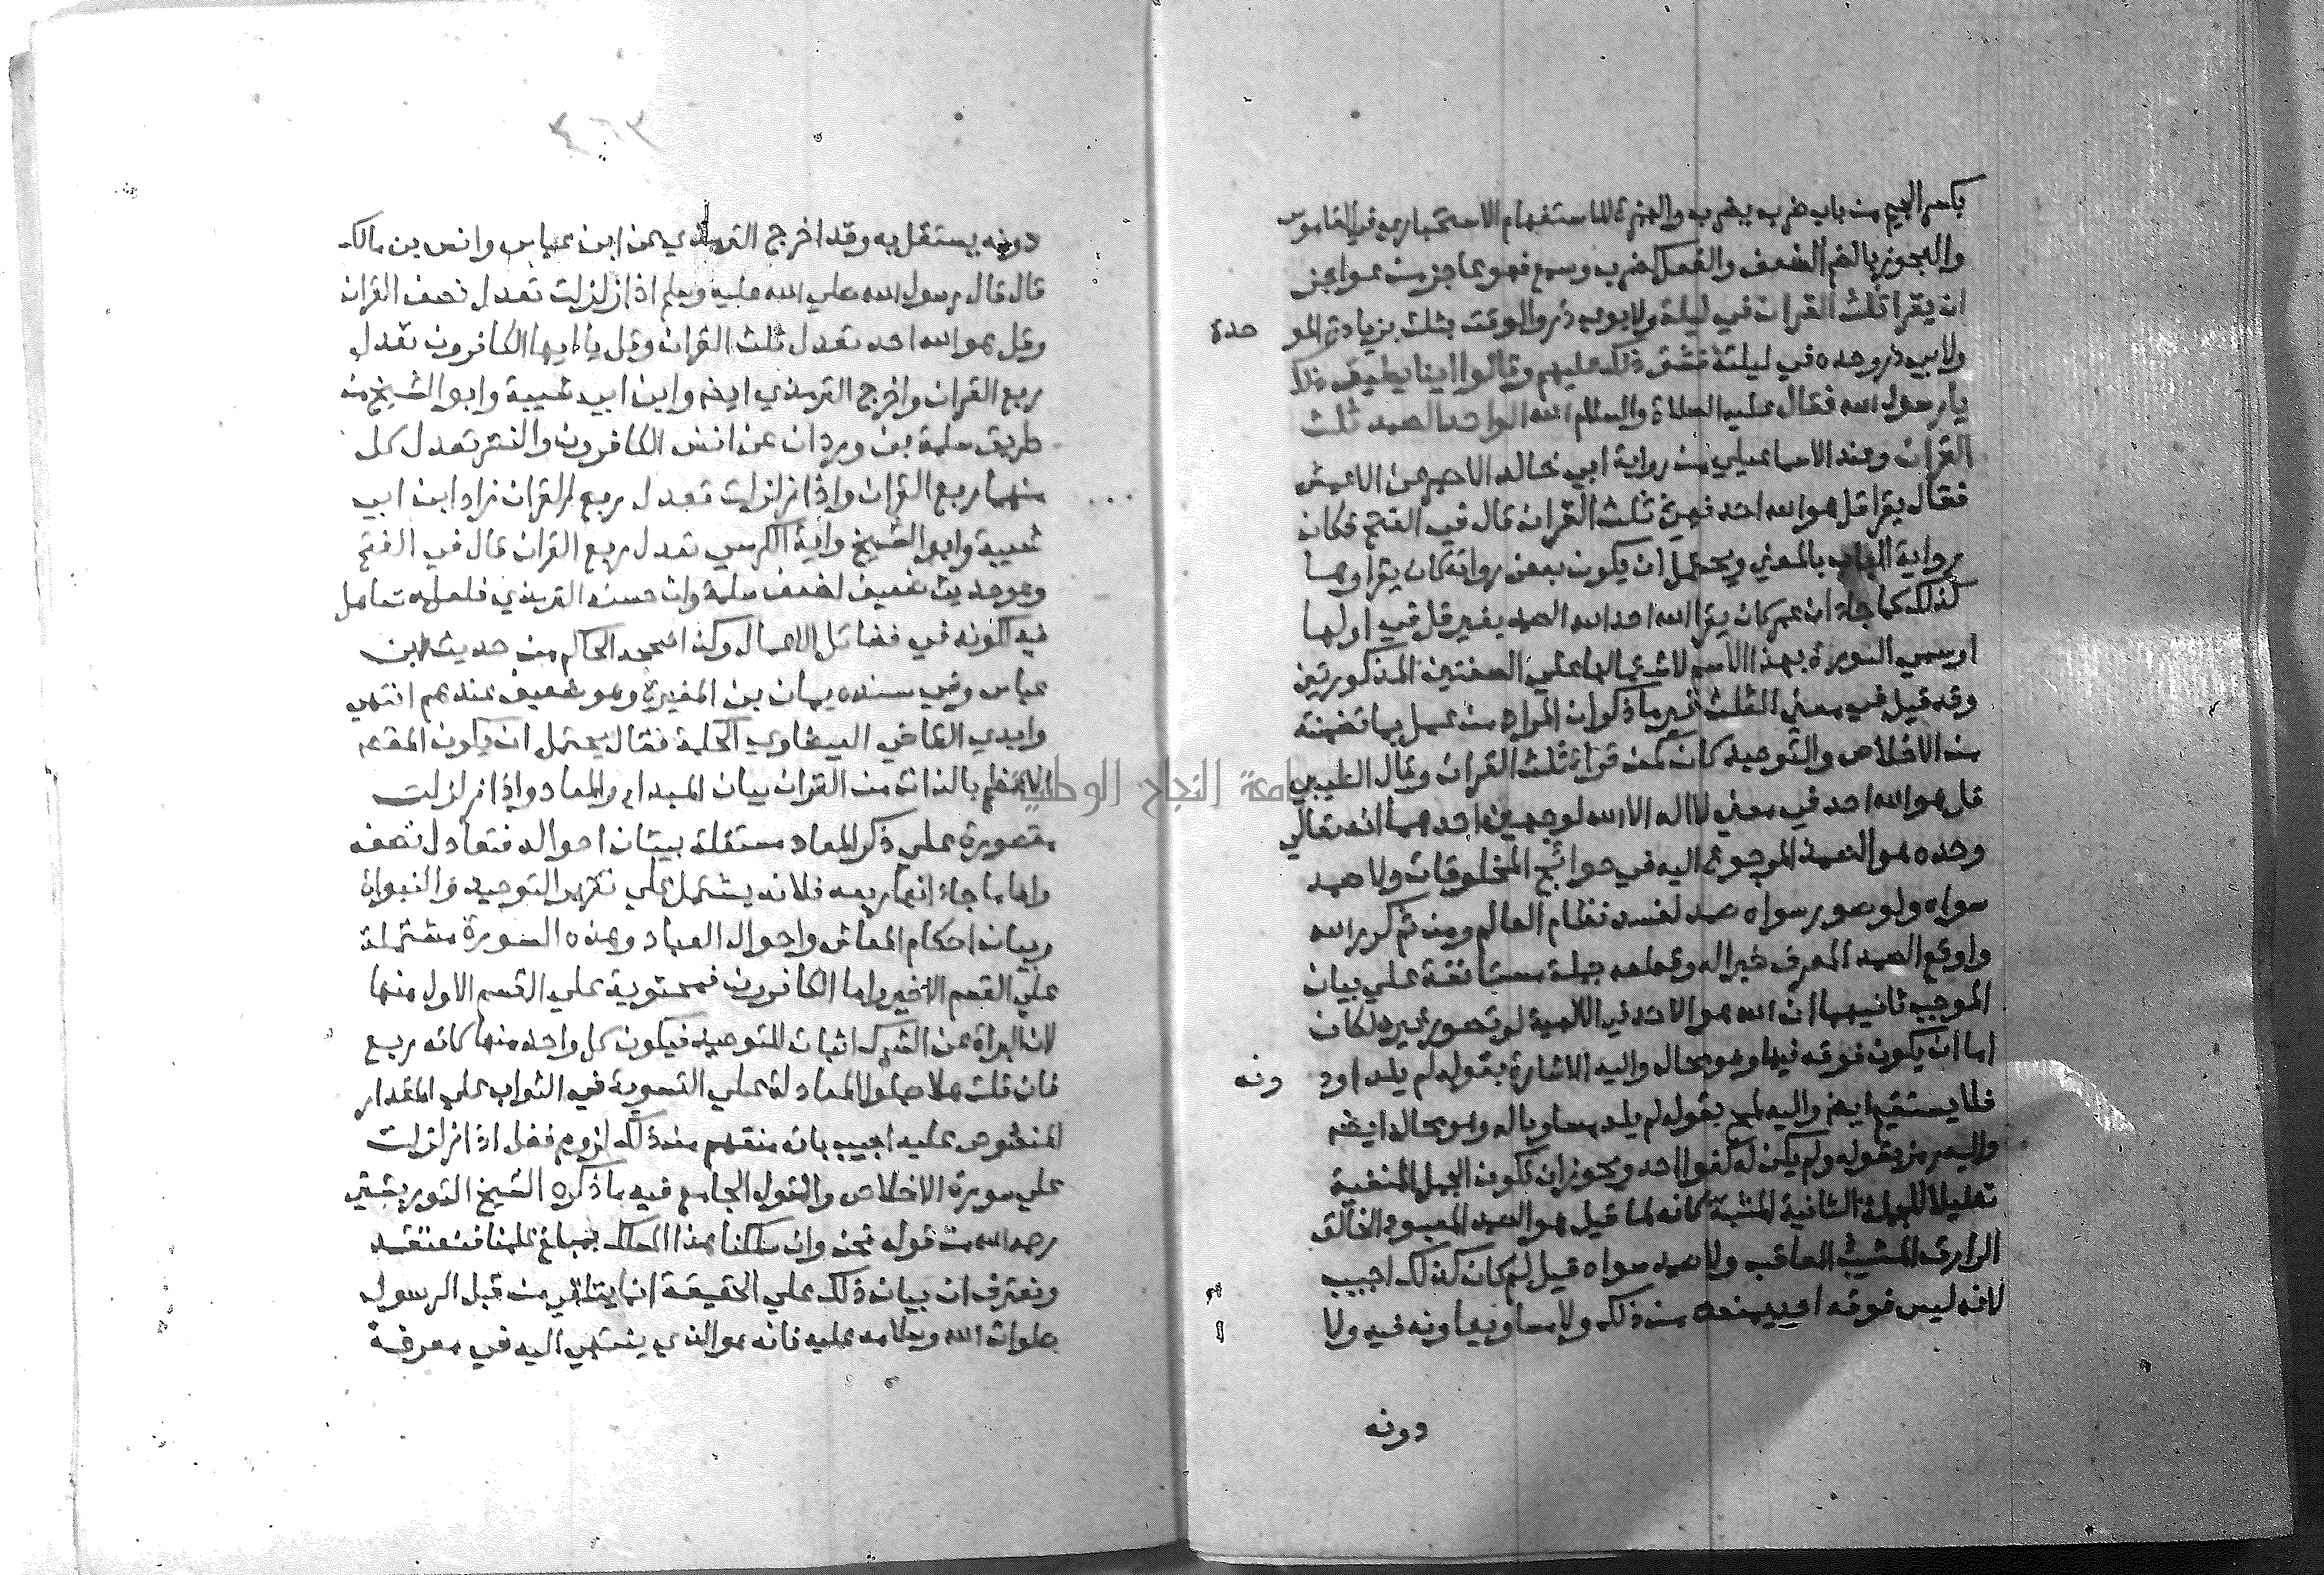 بكسر الجيم من باب ضرب يضرب والهمزة للاستفهام الاستخباري وفي القاموس
والعجوز بالضم الضعف والفعل كضرب وسمع فهو عاجز من عواجز
ان يقرا ثلث القران في ليلة ولابوي ذر والوقت بثلث بزيادة المو حدة
ولابي ذر وحده في ليلته فشق ذلك عليهم وقالوا اينا يطيق ذلك
يا رسول الله فقال عليه الصلاة والسلام الله الواحد الصمد ثلث
القران وعند الاسماعيلي من رواية ابي خالد الاحمر عن الاعمش
فقال يقرا قل هو الله احد فهي ثلث القران قال في الفتح فكان
رواية الباب بالمعني ويحتمل ان يكون بعض رواته كان يقراوها
كذلك كما جاء ان عمر كان يقرا الله احد الله الصمد بغير قل في اولها
او سمي السورة بهذا الاسم لاشتمالها علي الصفتين المذكورتين
وقد قيل في معني الثلث غير ما ذكر ان المراد من عمل بما تضمنته
من الاخلاص والتوحيد كان كمن قرا ثلث القران وقال الطيبي
قل هو الله احد في معني لا اله الا الله لوجهين احدهما انه تعالي
وحده هو الصمد المرجوع اليه في حوائج المخلوقات ولا صمد
سواه ولو صور سواه صمد لفسد نظام العالم ومن ثم كرر الله
واوقع الصمد المعرف خبرا له وقطعه جملة مستانفة علي بيان
الموجب ثانيهما ان الله هو الاحد في الالهية لو تصور غيره لكان
اما ان يكون فوقه فيها وهو محال واليه الاشارة بقوله لم يلد اود ونه
فلا يستقيم ايضا واليه لمح بقوله لم يلد مساويا له وهو محال ايضا
واليه رمز بقوله ولم يكن له كفوا احد ويجوز ان تكون الجمل المنفية
تعليلا للجملة الثانية المثبتة كانه لما قيل هو الصمد المعبود الخالق
الرازق المثيب المعاقب ولا صمد سواه قيل لم كان كذلك اجيب
لانه ليس فوقه احد يمنعه من ذلك ولا مساو يعاونه فيه ولا
دونه
دونه يستقل به وقد اخرج الترمذي عن ابن عباس وانس بن مالك
قال قال رسول الله صلي الله عليه وسلم اذا زلزلت تعدل نصف القران
وقل هو الله احد تعدل ثلث القران وقل يا ايها الكافرون تعدل
ربع القران واخرج الترمذي ايضا وابن ابي شيبة وابو الشيخ من
طريق سلمة بن وردان عن انس الكافرون والنصر تعدل كل
منهما ربع القران واذا زلزلت تعدل ربع القران زاد ابن ابي
شيبة وابو الشيخ واية الكرسي تعدل ربع القران قال في الفتح
وهو حديث ضعيف لضعف سلمة وان حسنه الترمذي فلعله تساهل
فيه لكونه في فضائل الاعمال وكذا صححه الحاكم من حديث ابن
عباس وفي سنده يمان بن المغيرة وهو ضعيف عندهم انتهي
وابدي القاضي البيضاوي الحكمة فقال يحتمل ان يكون المقصد
الاعظم بالذات من القران بيان المبدا والمعاد واذا زلزلت
مقصورة علي ذكر المعاد مستقلة ببيان احواله فتعادل نصفه
واما ما جاء انها ربعه فلانه يشتمل علي تقرير التوحيد والنبوات
وبيان احكام المعاش واحوال المعاد وهذه السورة مشتملة
علي القسم الاخير واما الكافرون فمحتوية علي القسم الاول منها
لان البراة عن الشرك اثبات للتوحيد فيكون كل واحدة منهما كانه ربع
فان قلت هلا حملوا المعادلة علي التسوية في الثواب علي المقدار
المنصوص عليه اجيب بانه منعهم من ذلك لزوم فضل اذا زلزلت
علي سورة الاخلاص والقول الجامع فيه ما ذكره الشيخ التوربشتي
رحمه الله من قوله نحن وان سلكنا هذا المسلك بمبلغ علمنا فنعتقد
ونعترف ان بيان ذلك علي الحقيقة انما يتلقي من قبل الرسول
صلوات الله وسلامه عليه فانه هو الذي ينتهي اليه في معرفة
جامعة النجاح الوطنية